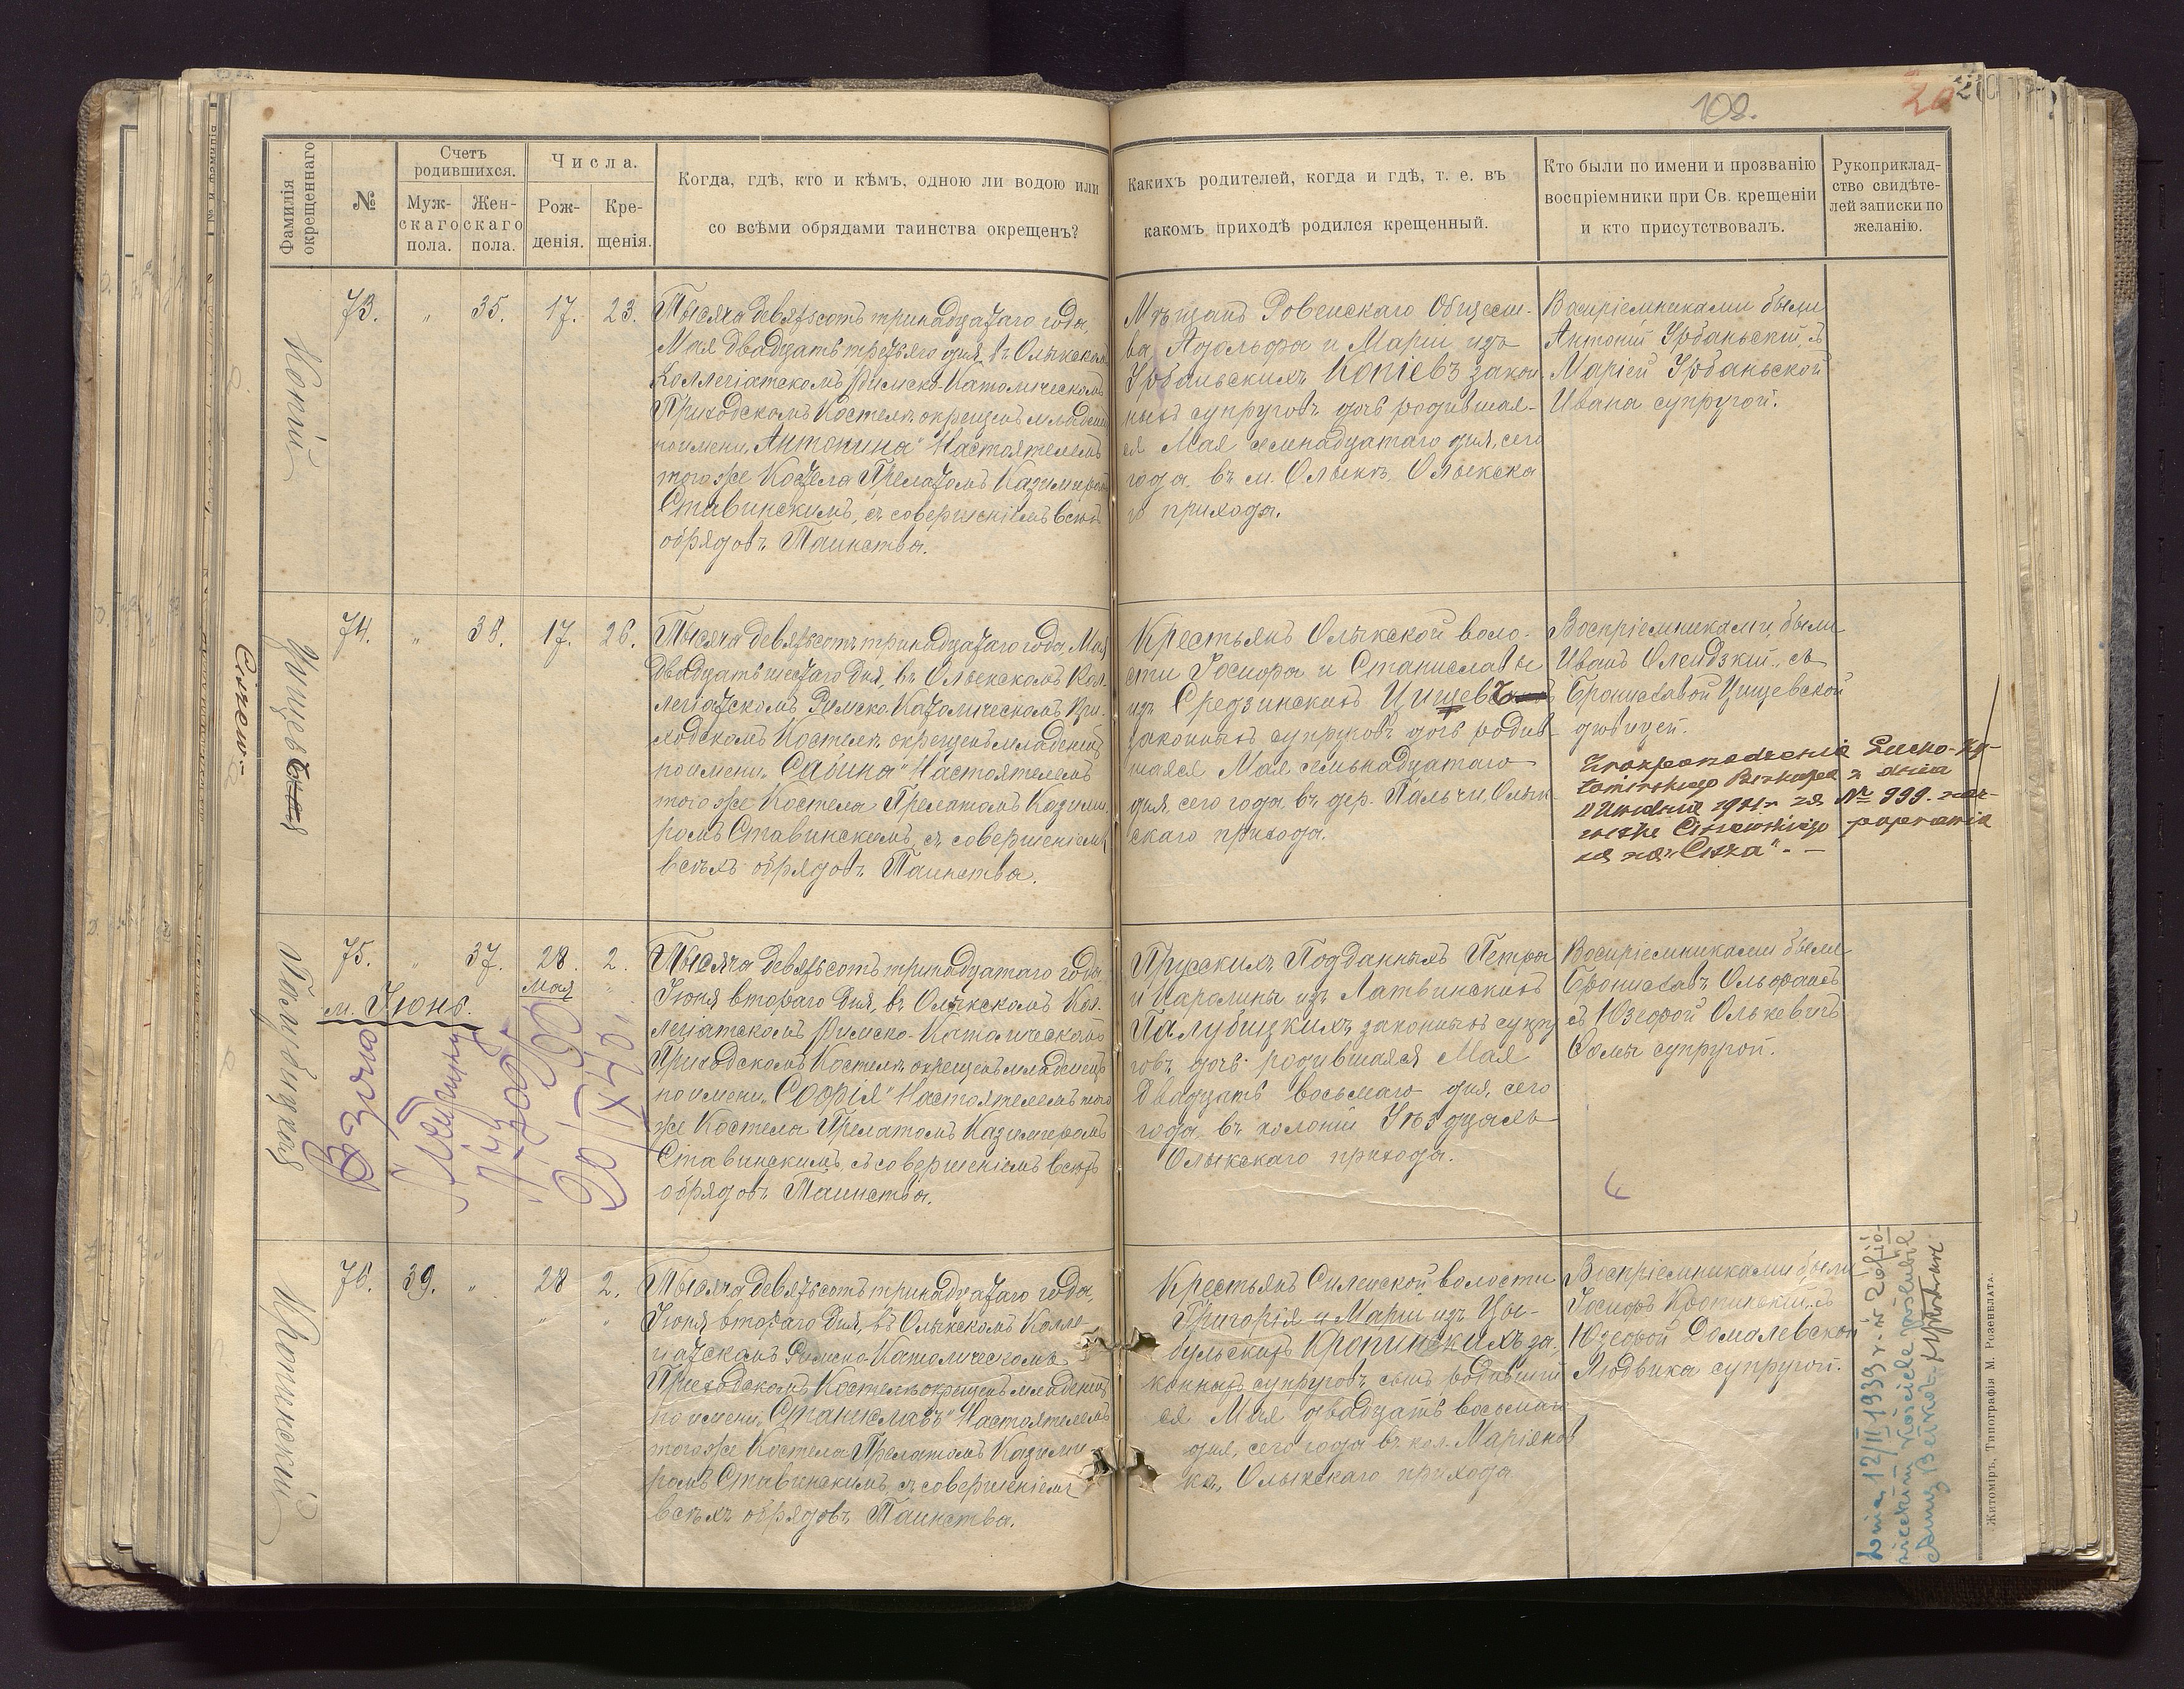 108.
20
Фамилія окрещеннаго
№
Счетъ родившихся.
Муж-
скаго
пола.
Жен-
скаго
пола.
Числа.
Рож-
денія.
Кре-
щенія.
Когда, гдѣ, кто и кѣмъ, одною ли водою или
со всѣми обрядами таинства окрещенъ?
Какихъ родителей, когда и гдѣ, т. е. въ
какомъ приходѣ родился крещенный.
Кто были по имени и прозванію
воспріемники при Св. крещеніи
и кто присутствовалъ.
Рукоприклад-
ство свидѣте-
лей записки по
желанію.
Копій
73.
"
35.
17.
23.
Тысяча девятьсотъ тринадцатаго года,
Мая двадцать третьяго дня, въ Олыкскомъ
Коллегіатскомъ Римско-Католическомъ
Приходскомъ Костелѣ окрещенъ младенецъ
по имени „Антонина" Настоятелемъ
того же Костела Прелатомъ Казимиромъ
Ставинскимъ, съ совершеніемъ всѣхъ
обрядовъ Таинства.
Мѣщанъ Ровенскаго Общест-
ва Адольфа и Маріи изъ
Урбаньскихъ Копіевъ закон-
ныхъ супруговъ дочь родившая-
ся Мая семнадцатаго дня, сего
года въ м. Олыкѣ, Олыкска
го прихода.
Воспріемниками были
Антоній Урбаньскій, съ
Маріей Урбаньской
Ивана супругой.
74.
"
38.
17.
26.
Тысяча девятьсотъ тринадцатаго года, Мая
двадцать шестаго дня, въ Олыкскомъ Кол-
легіатскомъ Римско-Католическомъ При-
ходскомъ Костелѣ окрещенъ младенецъ
по имени „Сабина" Настоятелемъ
того же Костела Прелатомъ Казими
ромъ Ставинскимъ, съ совершеніемъ
всѣхъ обрядовъ Таинства.
Крестьянъ Олыкской воло-
сти Іосифа и Станиславы
изъ Средзинскихъ
законныхъ супруговъ дочь родив-
шаяся Мая семьнадцатаго
дня, сего года въ дер. Пальчи, Олык-
скаго прихода.
Воспріемниками были
Иванъ Олейдзкій, съ
Брониславой Цищевской
дѣвицей.
Łuсko-Ży-
z dnia
za № 999.
Ciszewskiego poprawia
„Cisza". —
Голубицкая
75.
"
37.
28.
Мая
2.
"
м. Іюнь.
20/IX 40
Тысяча девятьсотъ тринадцатаго года
Іюня втораго дня, въ Олыкскомъ Кол-
легіатскомъ Римско-Католическомъ
Приходскомъ Костелѣ окрещенъ младенецъ
по имени „Софія" Настоятелемъ того
же Костела Прелатомъ Казимиромъ
Ставинскимъ, съ совершеніемъ всѣхъ
обрядовъ Таинства.
Прусскихъ Подданныхъ Петра
и Каролины изъ Латвинскихъ
Галубицкихъ законныхъ супру
говъ дочь родившаяся Мая
двадцать восьмаго дня, сего
года въ колоніи Уѣздцахъ
Олыкскаго прихода.
Воспріемниками были
Брониславъ
съ Юзефой Ольжевичъ
Ѳомы супругой.
Кропинскій
76.
39.
"
28
"
2.
"
Тысяча девятьсотъ тринадцатаго года,
Іюня втораго дня, въ Олыкскомъ Колле
гіатскомъ Римско-Католическомъ
Приходскомъ Костелѣ окрещенъ младенецъ
по имени „Станиславъ" Настоятелемъ
того же Костела Прелатомъ Казими
ромъ Ставинскимъ, съ совершеніемъ
всѣхъ обрядовъ Таинства.
Крестьянъ Силенской волости
Григорія и Маріи изъ Цы-
бульскихъ Кропинскихъ за-
конныхъ супруговъ сынъ родившій
ся Мая двадцать восьмаго
дня, сего года въ кол. Маріянов
ка, Олыкскаго прихода.
Воспріемниками были
Іосифъ Кропинскій, съ
Юзефой Домалевской
Людвика супругой.
Dnia 12/II 1939 r. w
kościele poślubił
Annę
Житоміръ, Типографія М. Розенблата.